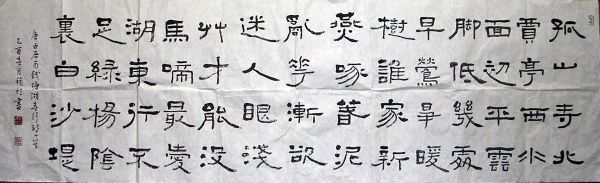 孤山寺北
賈亭西水
面初平雲
脚低幾處
早鶯爭暖
樹誰家新
燕啄春泥
亂花漸欲
迷人眼淺
草才能没
馬啼最愛
湖東行不
足綠楊陰
裏白沙堤
唐白居易錢塘湖春行詩一首
乙酉書